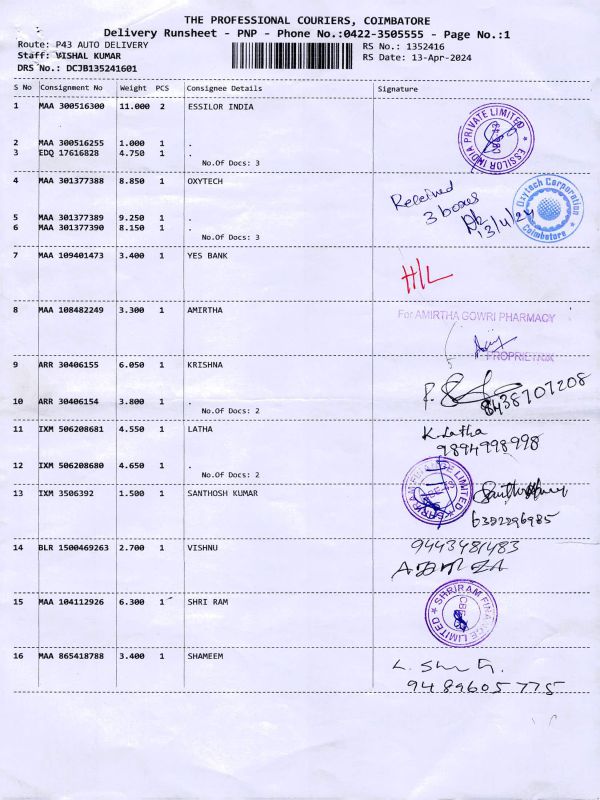 THE PROFESSIONAL COURIERS, COIMBATORE
Delivery Runsheet - PNP - Phone No.:0422-3505555 - Page No.:1
Route: P43 AUTO DELIVERY RS No.: 1352416
Staff: VISHAL KUMAR RS Date: 13-Apr-2024
DRS No.: DCJB135241601
S No Consignment No Weight PCS Consignee Details Signature
1 MAA 300516300 11.000 2 ESSILOR INDIA
ESSILOR INDIA PRIVATE LIMITED
2 MAA 300516255 1.000 1 .
3 EDQ 17616828 4.750 1 .
No.Of Docs: 3
4 MAA 301377388 8.850 1 OXYTECH
Received
3 boxes
13/4/24
Oxytech Corporation
Coimbatore
5 MAA 301377389 9.250 1 .
6 MAA 301377390 8.150 1 .
No.Of Docs: 3
7 MAA 109401473 3.400 1 YES BANK
H/L
8 MAA 108482249 3.300 1 AMIRTHA
For AMIRTHA GOWRI PHARMACY
PROPRIETRIX
9 ARR 30406155 6.050 1 KRISHNA
8438707208
10 ARR 30406154 3.800 1 .
No.Of Docs: 2
11 IXM 506208681 4.550 1 LATHA
K. Latha
9894998998
12 IXM 506208680 4.650 1 .
No.Of Docs: 2
13 IXM 3506392 1.500 1 SANTHOSH KUMAR
SHRIRAM FINANCE LIMITED
6382296985
14 BLR 1500469263 2.700 1 VISHNU
9443481483
15 MAA 104112926 6.300 1 SHRI RAM
SHRIRAM FINANCE LIMITED
16 MAA 865418788 3.400 1 SHAMEEM
9489605775